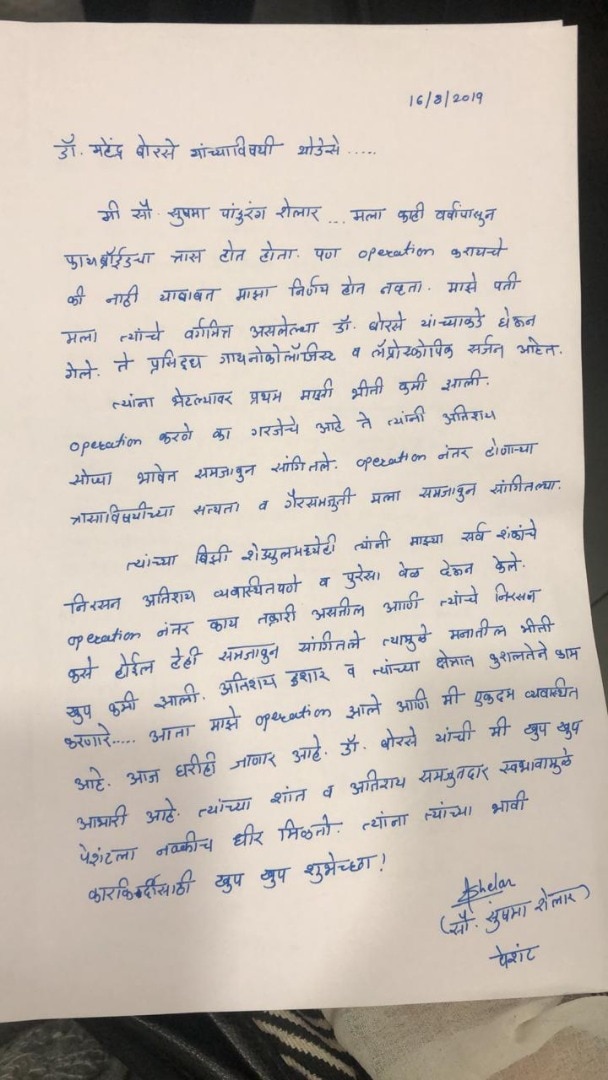 16/8/2019
डॉ. महेंद्र बोरसे यांच्याविषयी थोडेसे .....
मी सौ. सुषमा पांडुरंग शेलार ... मला काही वर्षापासुन
फायब्रॉईडचा त्रास होत होता. पण operation करायचे
की नाही याबाबत माझा निर्णय होत नव्हता. माझे पती
मला त्यांचे वर्गमित्र असलेल्या डॉ. बोरसे यांच्याकडे घेऊन
गेले. ते प्रसिद्ध गायनोकोलॉजिस्ट व लॅप्रोस्कोपिक सर्जन आहेत.
त्यांना भेटल्यावर प्रथम माझी भीती कमी झाली.
operation करणे का गरजेचे आहे ते त्यांनी अतिशय
सोप्या भाषेत समजावुन सांगितले. operation नंतर होणाऱ्या
त्रासाविषयीच्या सत्यता व गैरसमजुती मला समजावुन सांगितल्या.
त्यांच्या बिझी शेड्युलमध्येही त्यांनी माझ्या सर्व शंकांचे
निरसन अतिशय व्यवस्थितपणे व पुरेसा वेळ देऊन केले.
operation नंतर काय तक्रारी असतील आणि त्यांचे निरसन
कसे होईल तेही समजावुन सांगितले त्यामुळे मनातील भीती
खुप कमी झाली. अतिशय हुशार व त्यांच्या क्षेत्रात कुशलतेने काम
करणारे..... आता माझे operation झाले आणि मी एकदम व्यवस्थित
आहे. आज घरीही जाणार आहे. डॉ. बोरसे यांची मी खुप खुप
आभारी आहे. त्यांच्या शांत व अतिशय समजुतदार स्वभावामुळे
पेशंटला नक्कीच धीर मिळतो. त्यांना त्यांच्या भावी
कारकिर्दीसाठी खुप खुप शुभेच्छा!
Ashelar
(सौ. सुषमा शेलार)
पेशंट